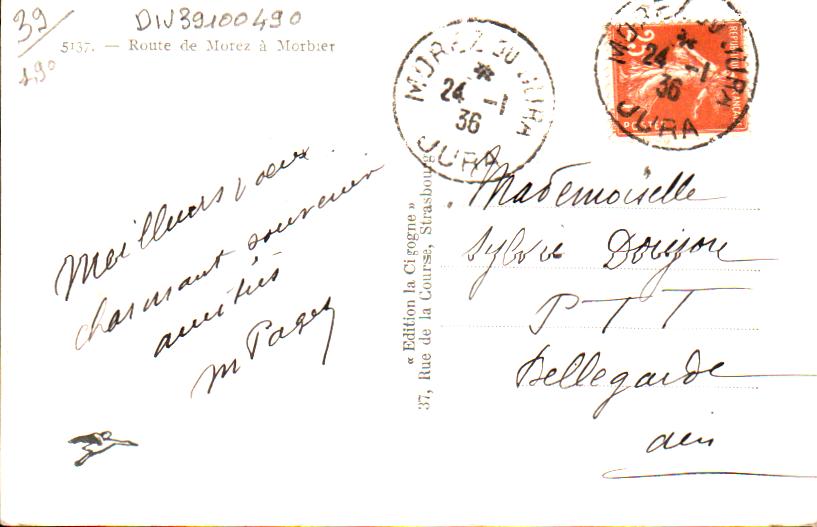 39
DIV39100490
1,90
5137. — Route de Morez à Morbier
MOREZ DU JURA
24 -1
36
JURA
MOREZ DU JURA
24 -1
36
JURA
25
POSTES
Meilleurs vœux
charmant souvenir
amitiés
M Pagez
« Edition la Cigogne »
37, Rue de la Course, Strasbourg
Mademoiselle
Sylvie
PTT
Bellegarde
ain